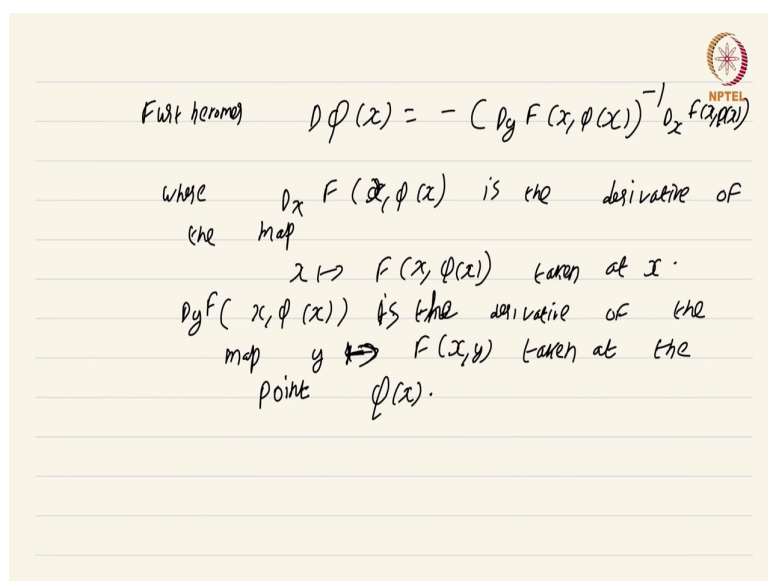 NPTEL
Furthermore Dφ(x) = - (Dy F(x, φ(x))⁻¹ Dx F(x,φ(x))
where Dx F(x, φ(x) is the derivative of
the map
x ↦ F(x, φ(x)) taken at x.
Dy F( x, φ(x)) is the derivative of the
map y ↦ F(x,y) taken at the
point φ(x).